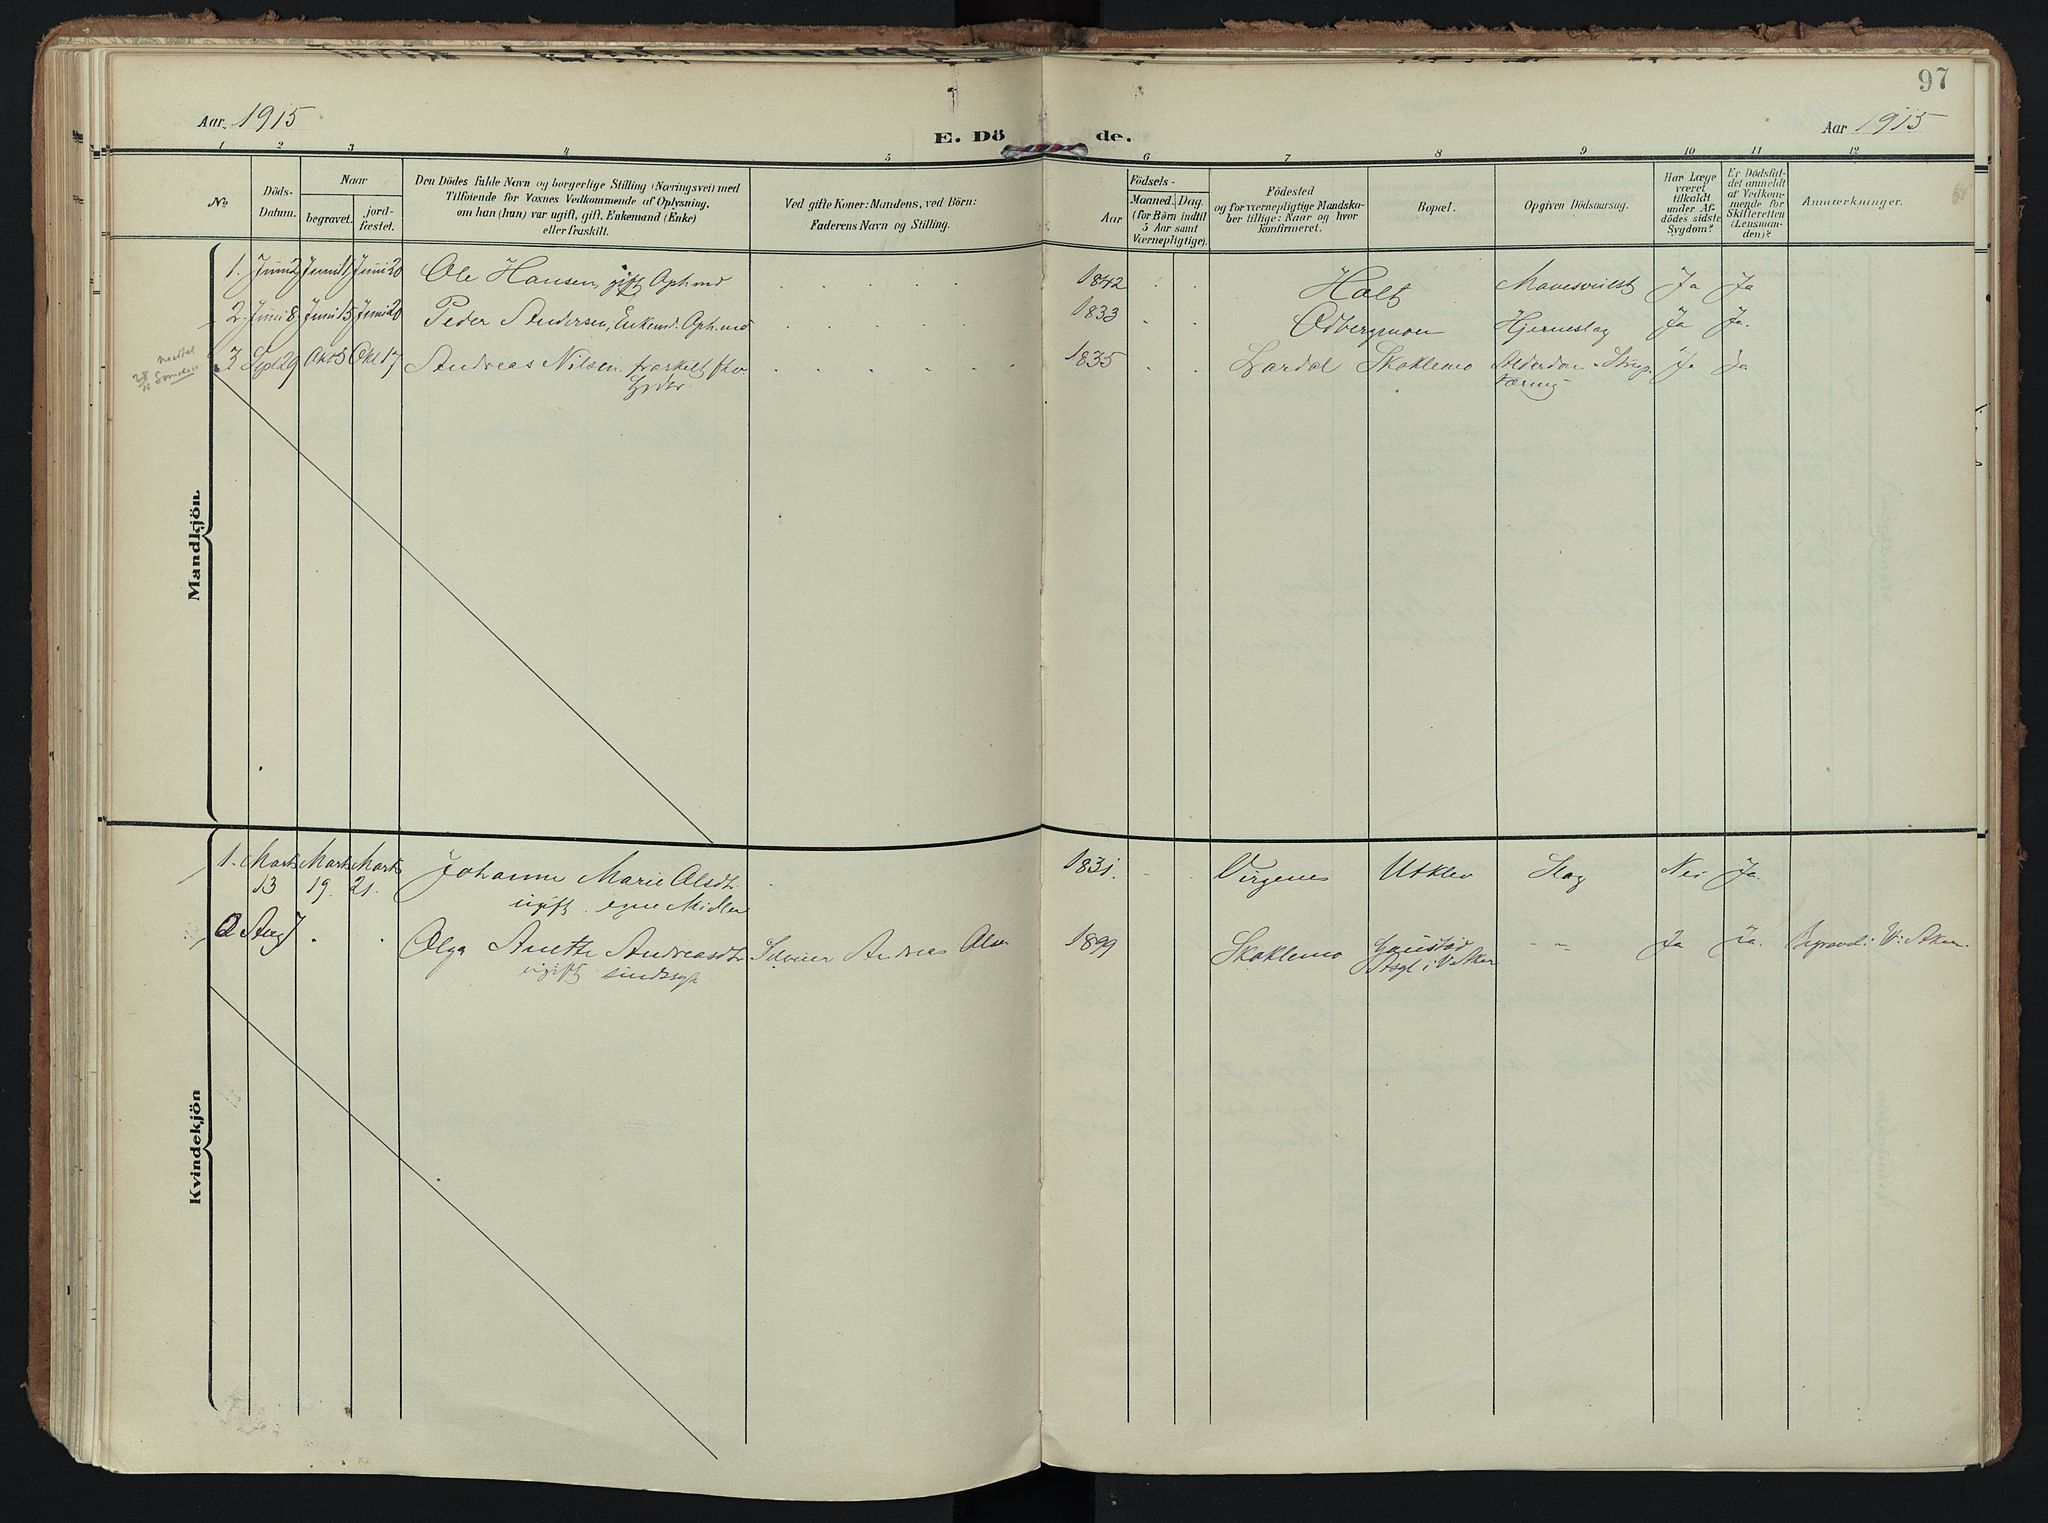 97
Aar. 1915
E. Dö de.
Aar 1915
1 2 3 4 5 6 7 8 9 10 11 12
No
Döds-
Datum.
Naar
begravet.
jord-
fæstet.
Den Dödes fulde Navn og borgerlige Stilling (Næringsvei) med
Tilföiende for Voxnes Vedkommende af Oplysning,
om han (hun) var ugift, gift, Enkemand (Enke)
eller fraskilt.
Ved gifte Koner: Mandens, ved Börn:
Faderens Navn og Stilling.
Födsels-
Aar
Maaned. Dag.
(for Börn indtil
5 Aar samt
Værnepligtige).
Födested
og for værnepligtige Mandska-
ber tillige: Naar og hvor
konfirmeret.
Bopæl.
Opgiven Dödsaarsag.
Har Læge
været
tilkaldt
under Af-
dödes sidste
Sygdom?
Er Dödsfal-
det anmeldt
af Vedkom-
mende for
Skifteretten
(Lensman-
den)?
Anmærkninger.
Mandkjön.
1. Juni 2 Juni 11 Juni 20 Ole Hansen, gift Ophmd 1842 Holt Mavesvulst Ja Ja
2. Juni 8. Juni 15 Juni 20 Peder Andersen, Enkemd. Ophmd 1833 Odbergmoen Hjerneslag Ja Ja.
3 Sept 29 Okt 5 Okt 17 Andreas Nilsen fraskilt 1835 Lardal Skoklemo Alderdom Ja Ja
Kvindekjön
1. Marts Marts Marts Johanne Marie Olsdt. 1831. Virgenes Utklev Slag Nei Ja.
13 19. 21. ugift egne Midler
2 Aug 7 Olga Anette Andreasdt. Selveier Andreas Olsen 1899 Skoklemo Gaustad Ja Ja. Begravet i V. Aker
ugift sindssyk Asyl i V. Aker